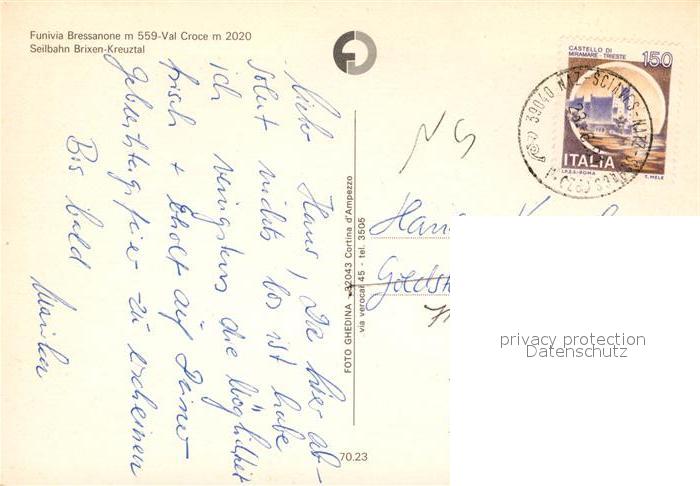 Funivia Bressanone m 559-Val Croce m 2020
Seilbahn Brixen-Kreuztal
Lieber Hans! Da hier ab-
solut nichts los ist habe
ich wenigstens die Möglichkeit
frisch + erholt auf Deiner
Geburtstagsfeier zu erscheinen
Bis bald
FOTO GHEDINA - 32043 Cortina d'Ampezzo
via verocai 45 - tel. 3505
70.23
CASTELLO DI
MIRAMARE - TRIESTE
150
ITALIA
I.P.Z.S.-ROMA
T. MELE
39040 NAZ-SCIAVES-NATZ-
privacy protection
Datenschutz